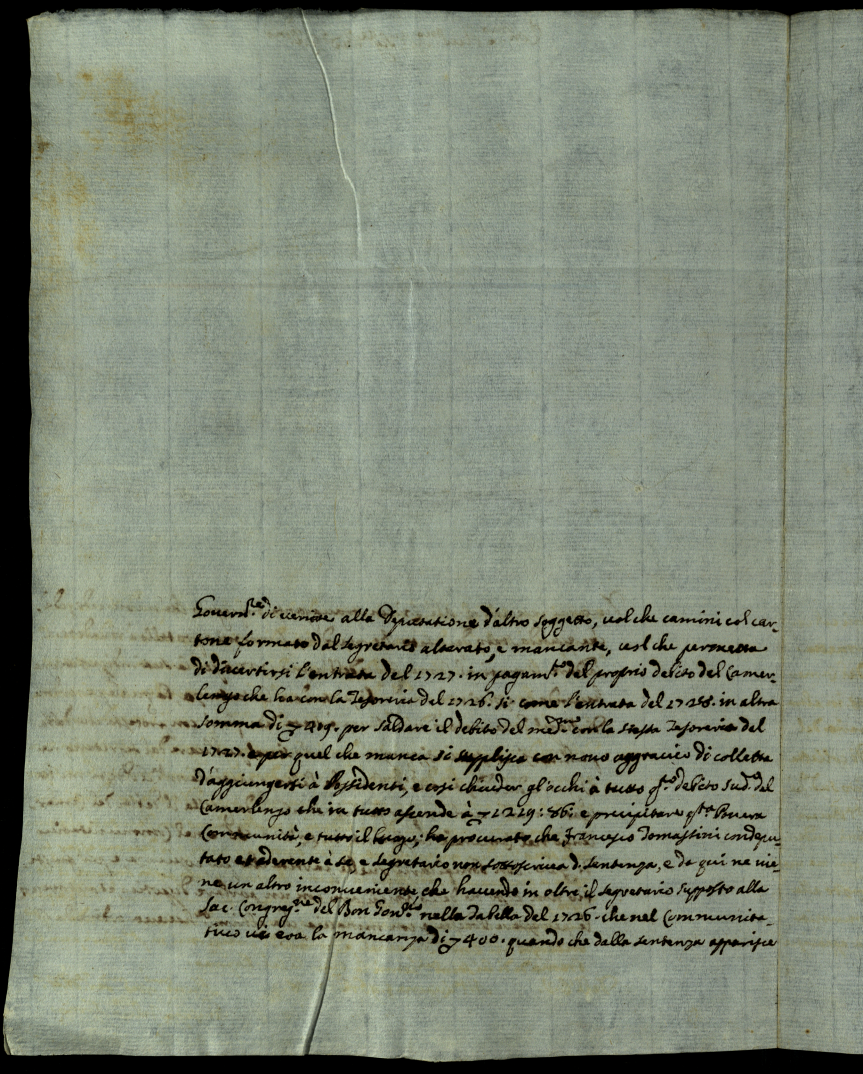 Governre di venire alla Deputatione d'altro soggetto, vol che camini col car-
tone formato dal segretario alterato, e mancante, vol che permetta
di divertirsi l'entrata del 1727. in pagamto del proprio debito del Camer-
lengo che ha con la Tesoreria del 1726. si come l'entrata del 1728. in altra
somma di 419. per saldare il debito del medo con la stessa Tesoreria del
1727. e per quel che manca si supplisca con novo aggravio di colletta
d'aggiungersi à Possidenti, e cosi chiuder gl'occhi à tutto qto debito sudo del
Camerlengo che in tutto ascende à 1219: 86: e precipitare qta Povera
Communità, e tutto il luogo; ha procurato che Francesco Tomassini condepu-
tato et aderente à se, e segretario non sottoscriva d. sentenza, e da qui ne vie-
ne un altro inconveniente che havendo in oltre il segretario supposto alla
Sac. Congregne del Bon Governo nella Tabella del 1726. che nel Communita-
tivo vi era la mancanza di 400. quando che dalla sentenza apparisce